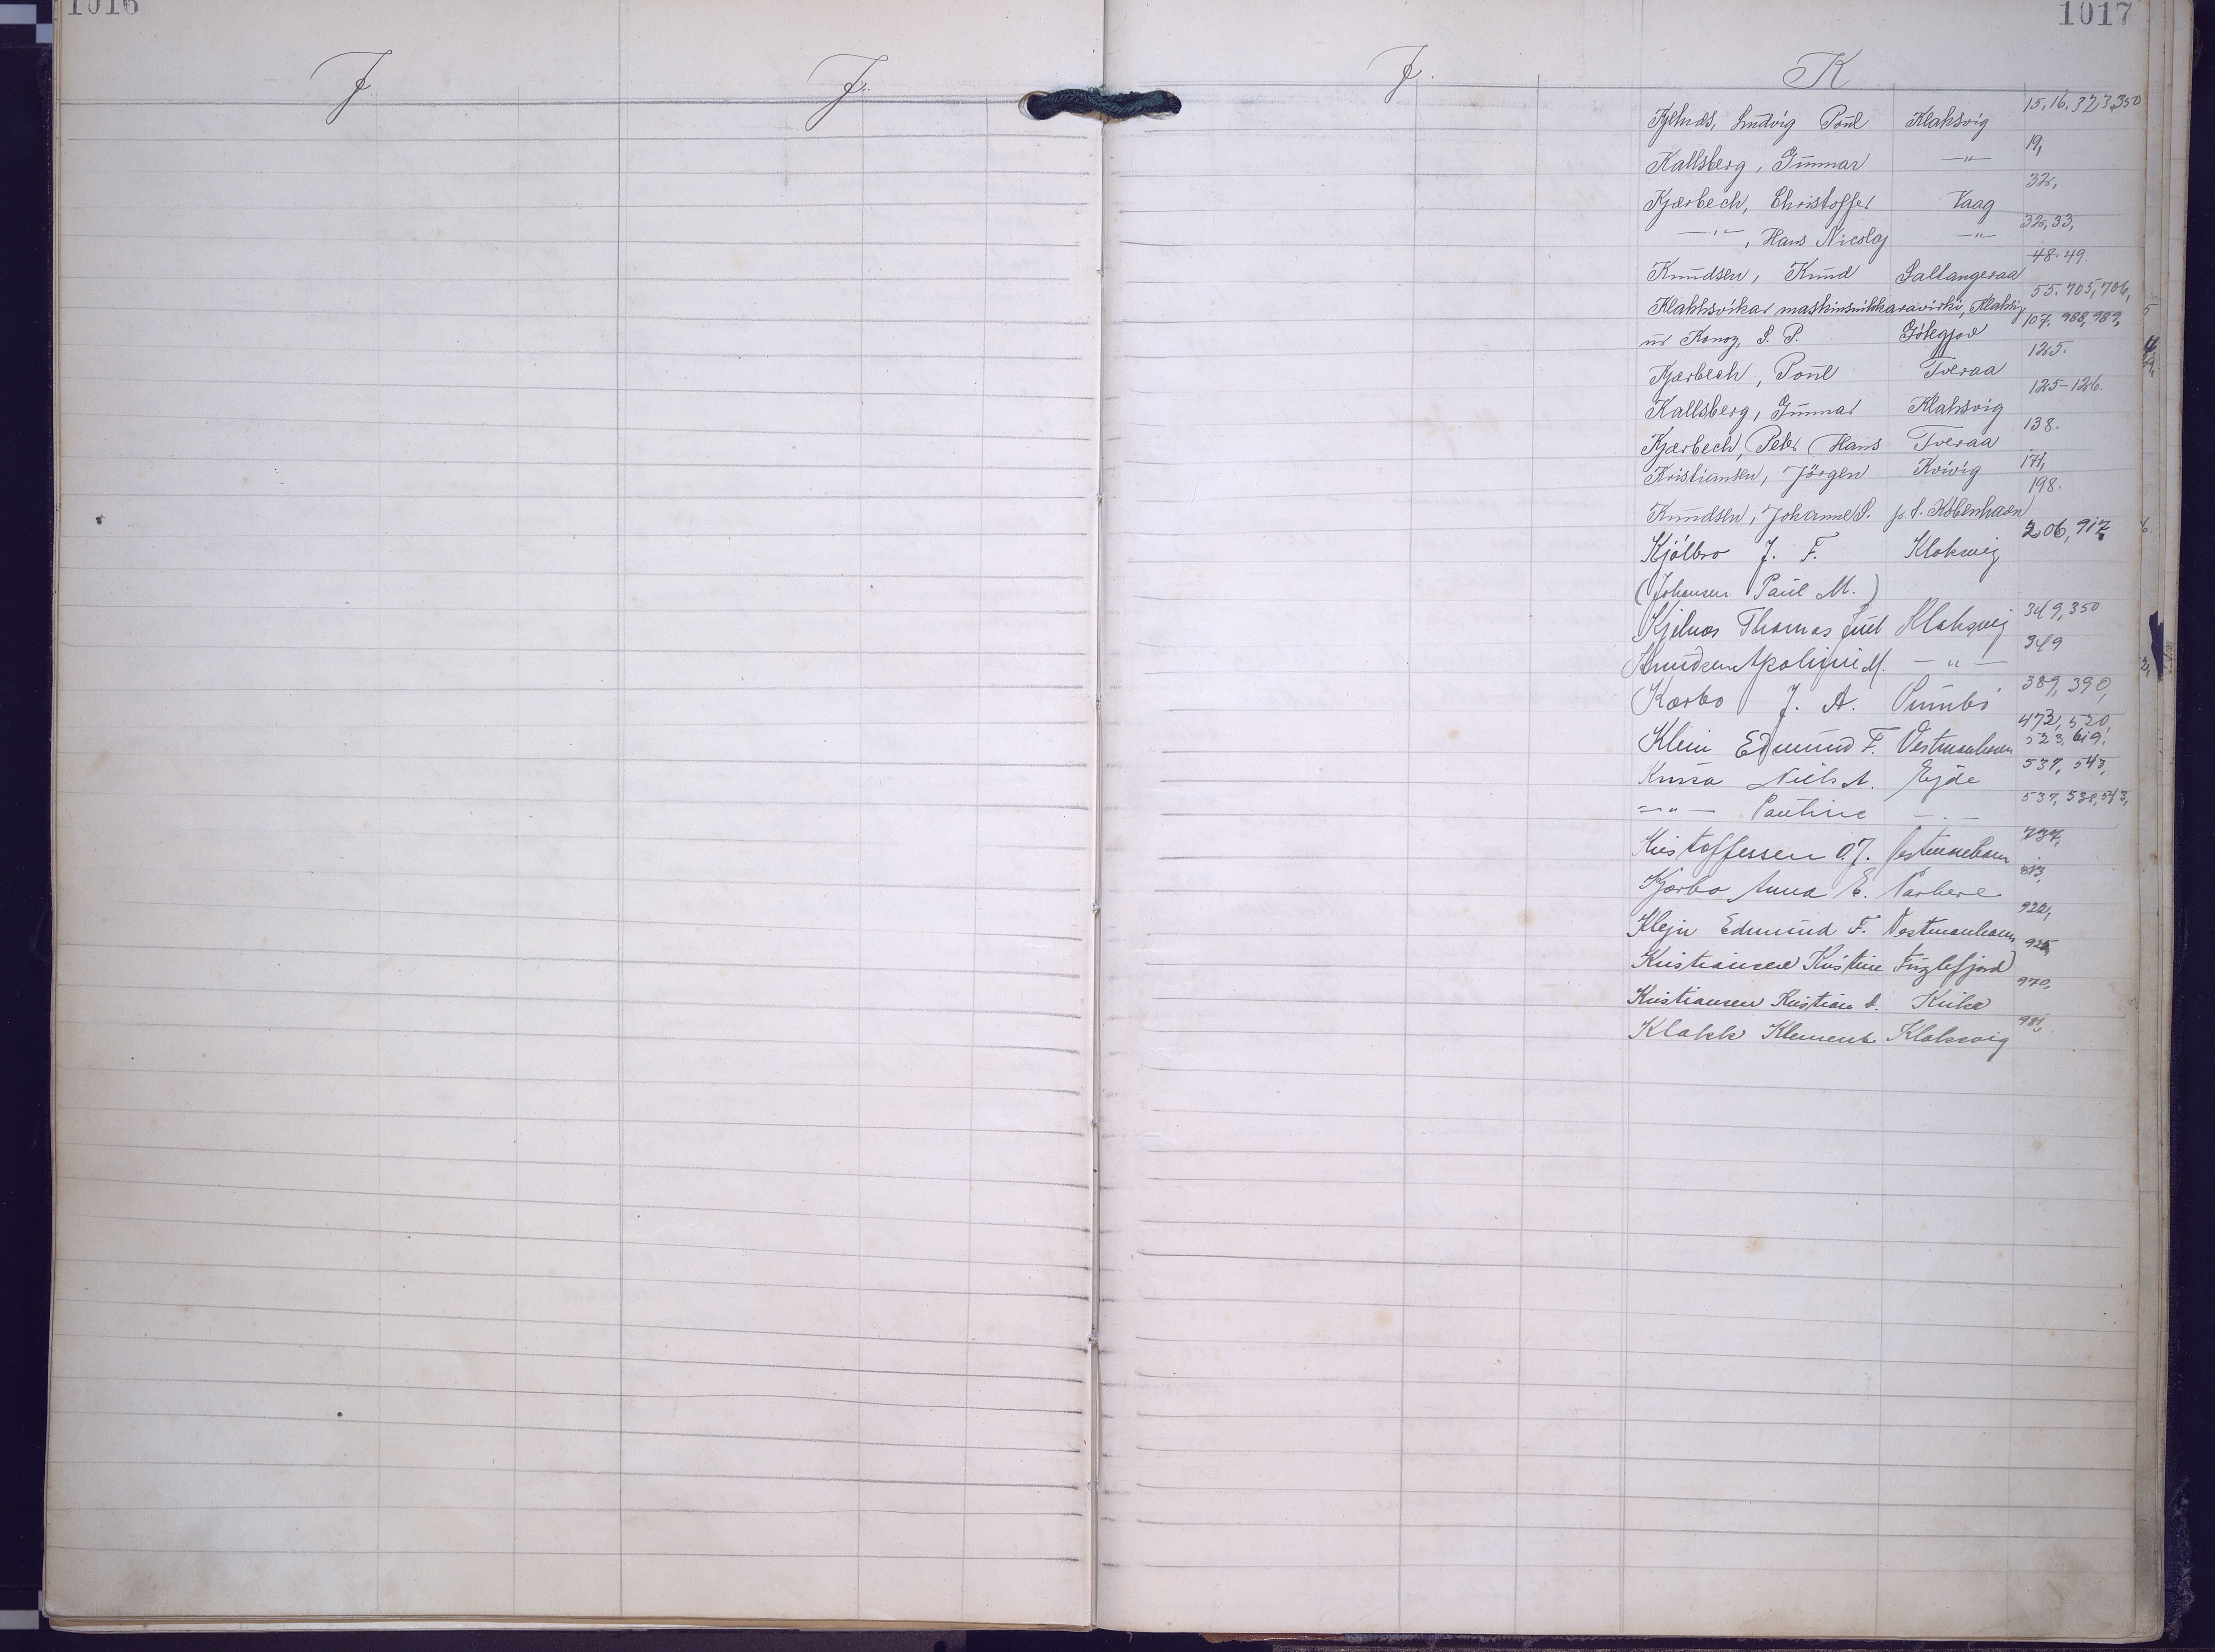 1016
1017
J J. J. K
Kjelnæs, Ludvig Poul Klaksvig 15, 16, 323, 350
Kallsberg, Gunnar —"— 19,
Kjærbech, Christoffer Vaag 32,
—"—, Hans Nicolaj —"— 32, 33,
Knudsen, Knud Saltangeraa 48-49.
Klakksvíkar maskinsnikkaravirki, Klaksvig 55. 705, 706,
úr Konoy, S. P. Götegjov 107. 988, 989,
Kjærbech, Poul Tveraa 125.
Kallsberg, Gunnar Klaksvig 125-126.
Kjærbech, Peter Hans Tveraa 138.
Kristiansen, Jörgen Kvivig 171,
Knudsen, Johanne S. p. t. Köbenhavn 198.
Kjölbro J. F. Klaksvig 206, 917
(Johansen Paul M.)
Kjelnæs Thomas Juul Klaksvig 349, 350
Knudsen Apoline M. —"— 349
Kærbo J. A. 389, 390,
Klein Edmund F. Vestmanhavn 472, 520, 523, 619,
Niels A. Ejde 537, 543,
—"— Pauline —"— 537, 538, 543,
Kristoffersen O. J. Vestmanhavn 737,
Kjærbo Anna E. Porkere 813,
Klejn Edmund F. Vestmanhavn 922,
Kristiansen Kristine Fuglefjord 925,
Kristiansen Kristian 970,
Klakk Klement Klaksvig 981,